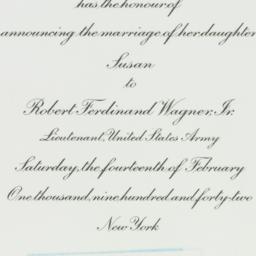 has the honour of
announcing the marriage of her daughter
Susan
to
Robert Ferdinand Wagner, Jr.
Lieutenant, United States Army
Saturday, the fourteenth of February
One thousand, nine hundred and forty-two
New York